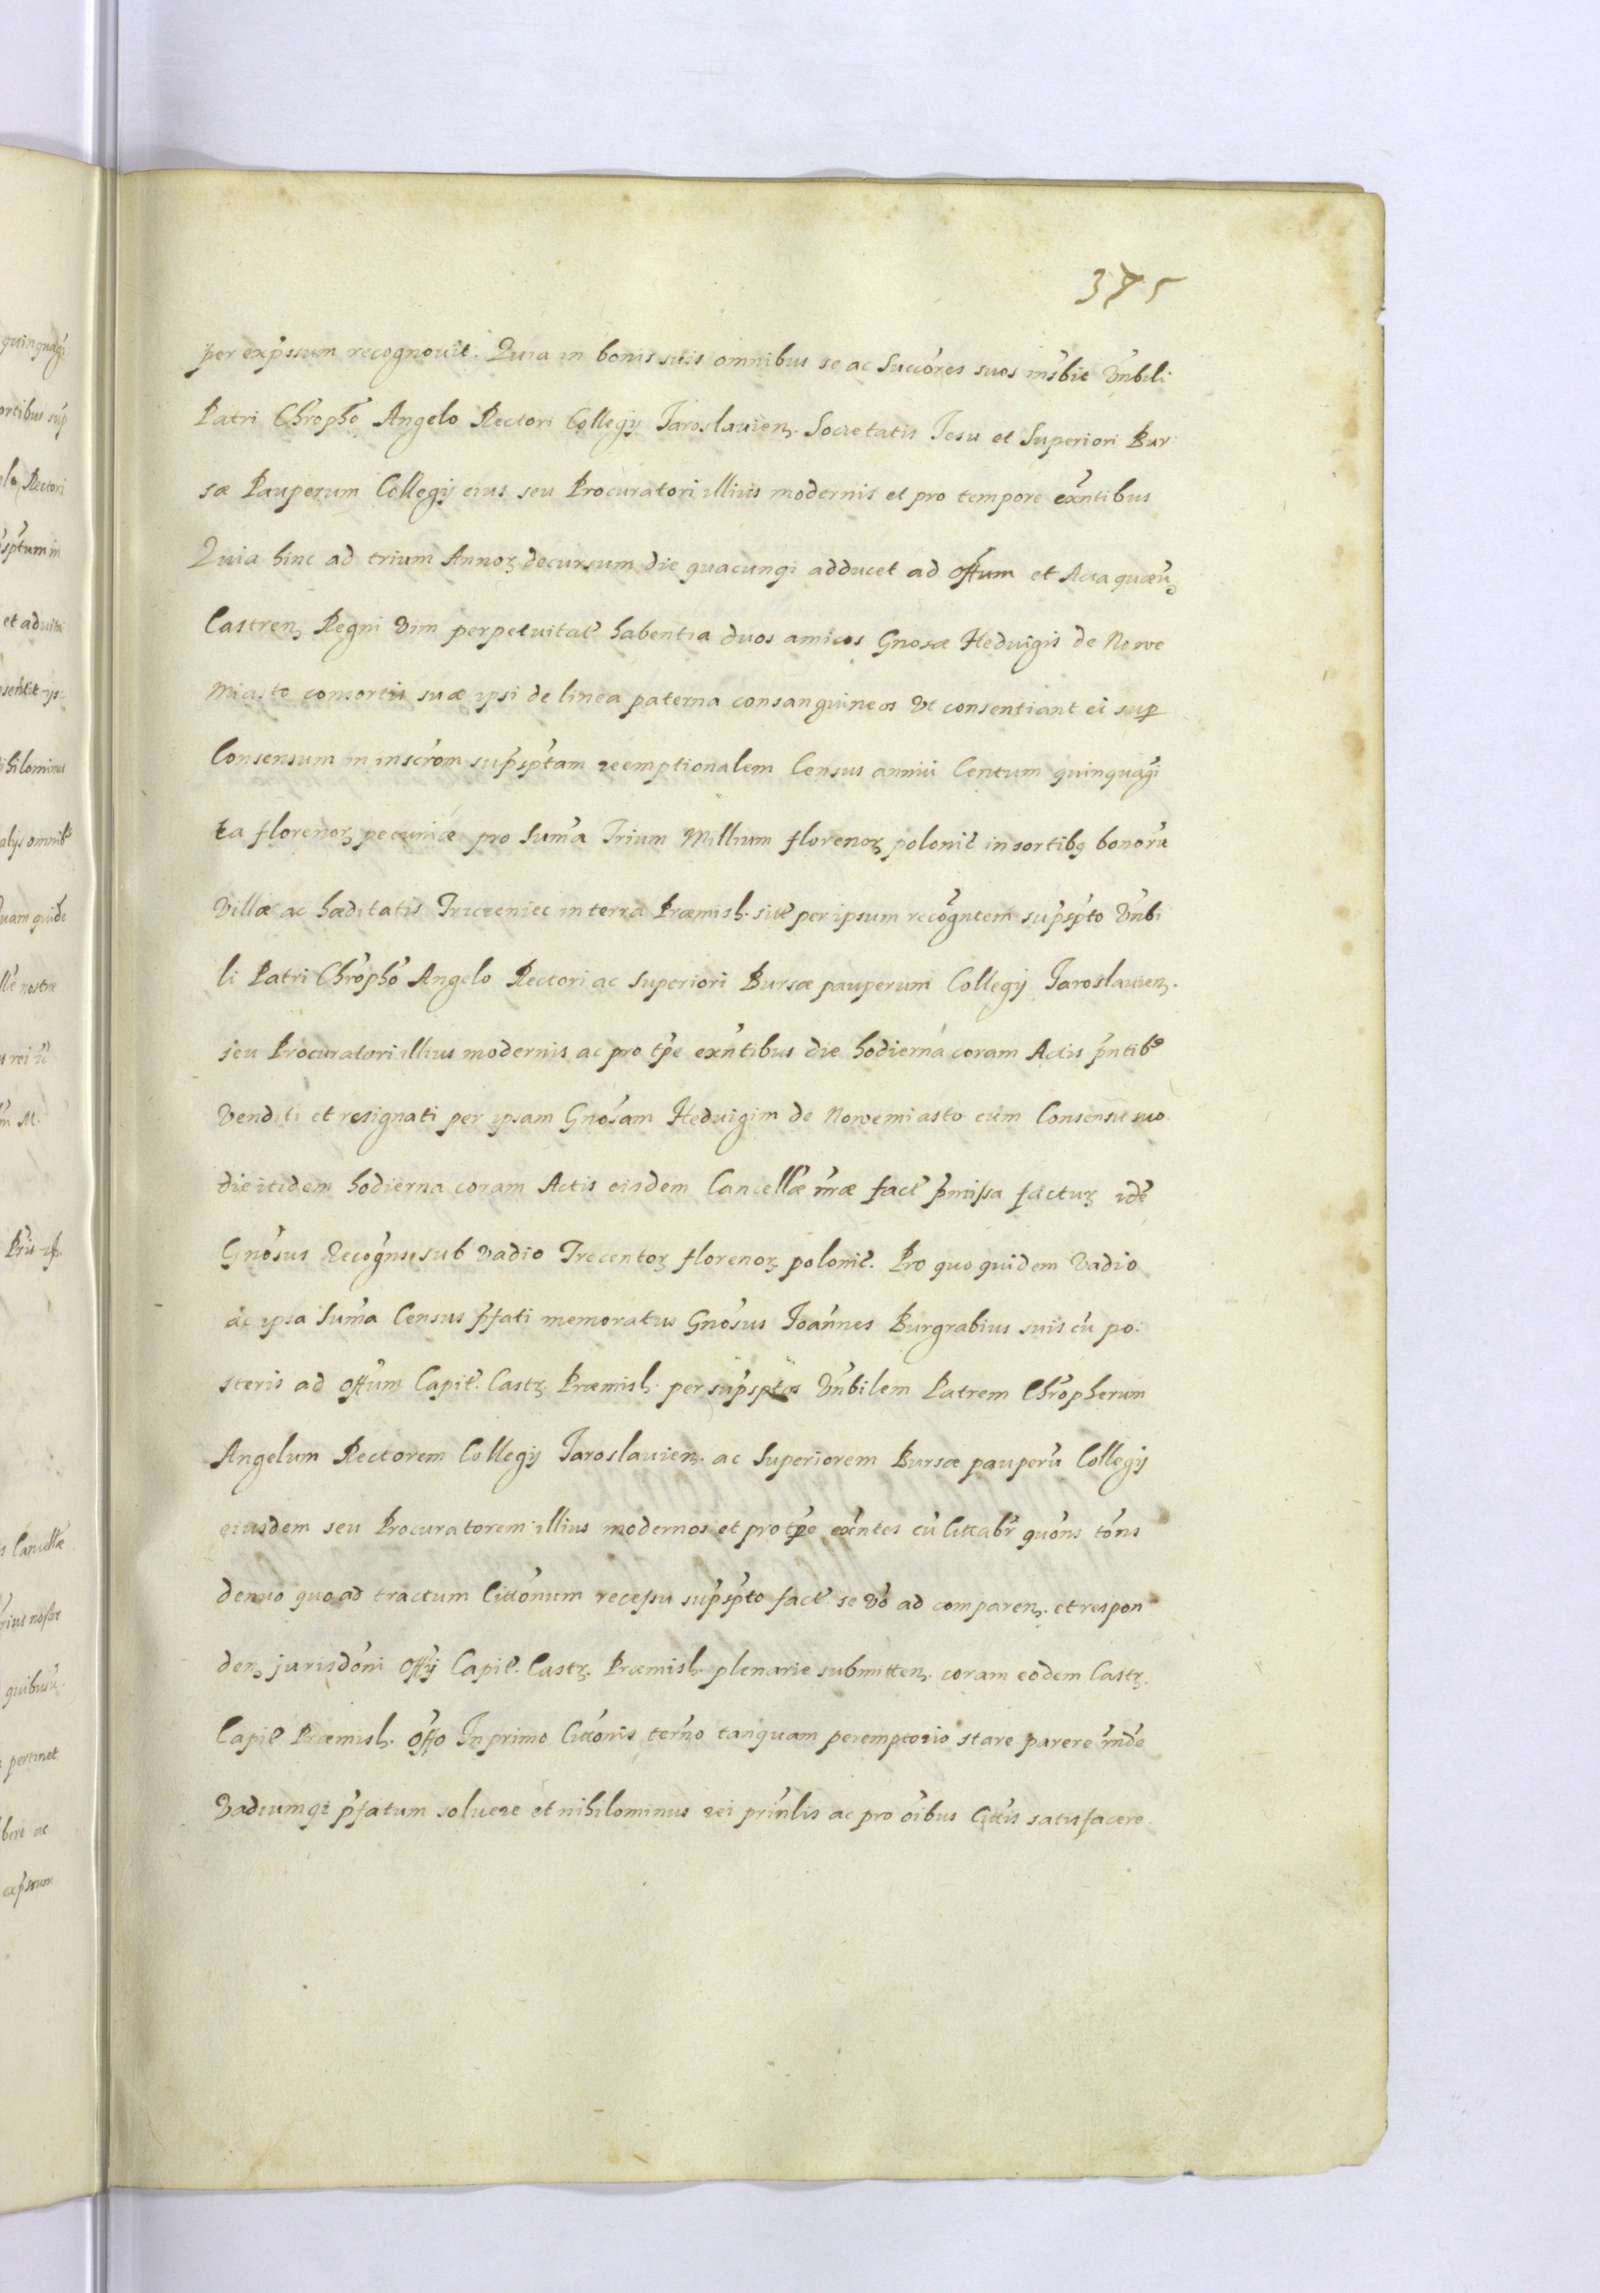 375
per exp̃ssum recognovit. Quia in bonis suis omnibus se ac Succõres suos insb̃it Vñbili
Patri Chr̃opho Angelo Rectori Collegij Jaroslauien. Societatis Jesu et Superiori Bur
sæ Pauperum Collegij eius seu Procuratori illius modernis et pro tempore exñtibus
Quia hinc ad trium Annoꝝ decursum die quacunqi adducet ad Offum et Acta quæũ
Castren Regni vim perpetuitat̃ habentia duos amicos Gnosæ Heduigis de Nowe
Miasto consortis suæ ipsi de linea paterna consanguineos Vt consentiant ei sup
Consensum in inscr̃om sup̃sp̃tam reemptionalem Census annui Centum quinquagi
ta florenoꝝ pecuniæ pro Sum̃a Trium Millium florenoꝝ polonic̃ in sortibꝫ bonorũ
Villæ ac hæditatis Trzczeniec in terra Præmisl. sit̃ per ipsum recog̃ntem sup̃sp̃to Vñbi
li Patri Chr̃opho Angelo Rectori ac Superiori Bursæ pauperum Collegij Jaroslauien.
seu Procuratori illius modernis ac pro tp̃e exñtibus die hodierna coram Actis p̃ntibꝰ
Venditi et resignati per ipsam Gnõsam Heduigim de Nowemiasto cum Consensu suo
die itidem hodierna coram Actis eisdem Cancellæ nr̃æ fact̃ p̃missa factuꝝ idẽ
Gnõsus Recog̃ns sub vadio Trecentoꝝ florenoꝝ polonic̃. Pro quo quidem vadio
ac ipsa Sum̃a Census p̃fati memoratus Gnõsus Joañnes Burgrabius suis cũ po:
steris ad Offum Capit̃. Castꝝ Præmisl. per sup̃sp̃tos Vñbilem Patrem Chr̃opherum
Angelum Rectorem Collegij Jaroslauien. ac Superiorem Bursæ pauperũ Collegij
eiusdem seu Procuratorem illius modernos et pro tp̃e exñtes cũ Cittabr̃ quõns tõns
denuo quoad tractum Cittõnum recessu sup̃sp̃to fact̃ se Võ ad comparen. et respon
den jurisdõni Offij Capit̃. Castꝝ. Præmisl. plenarie submitten. coram eodem Castꝝ.
Capit̃ Præmisl. Offo In primo Cittõnis ter̃no tanquam peremptorio stare parere iñde
Vadiumqe p̃fatum soluere et nihilominus rei priñlis ac pro õibus Cittis satisfacere.